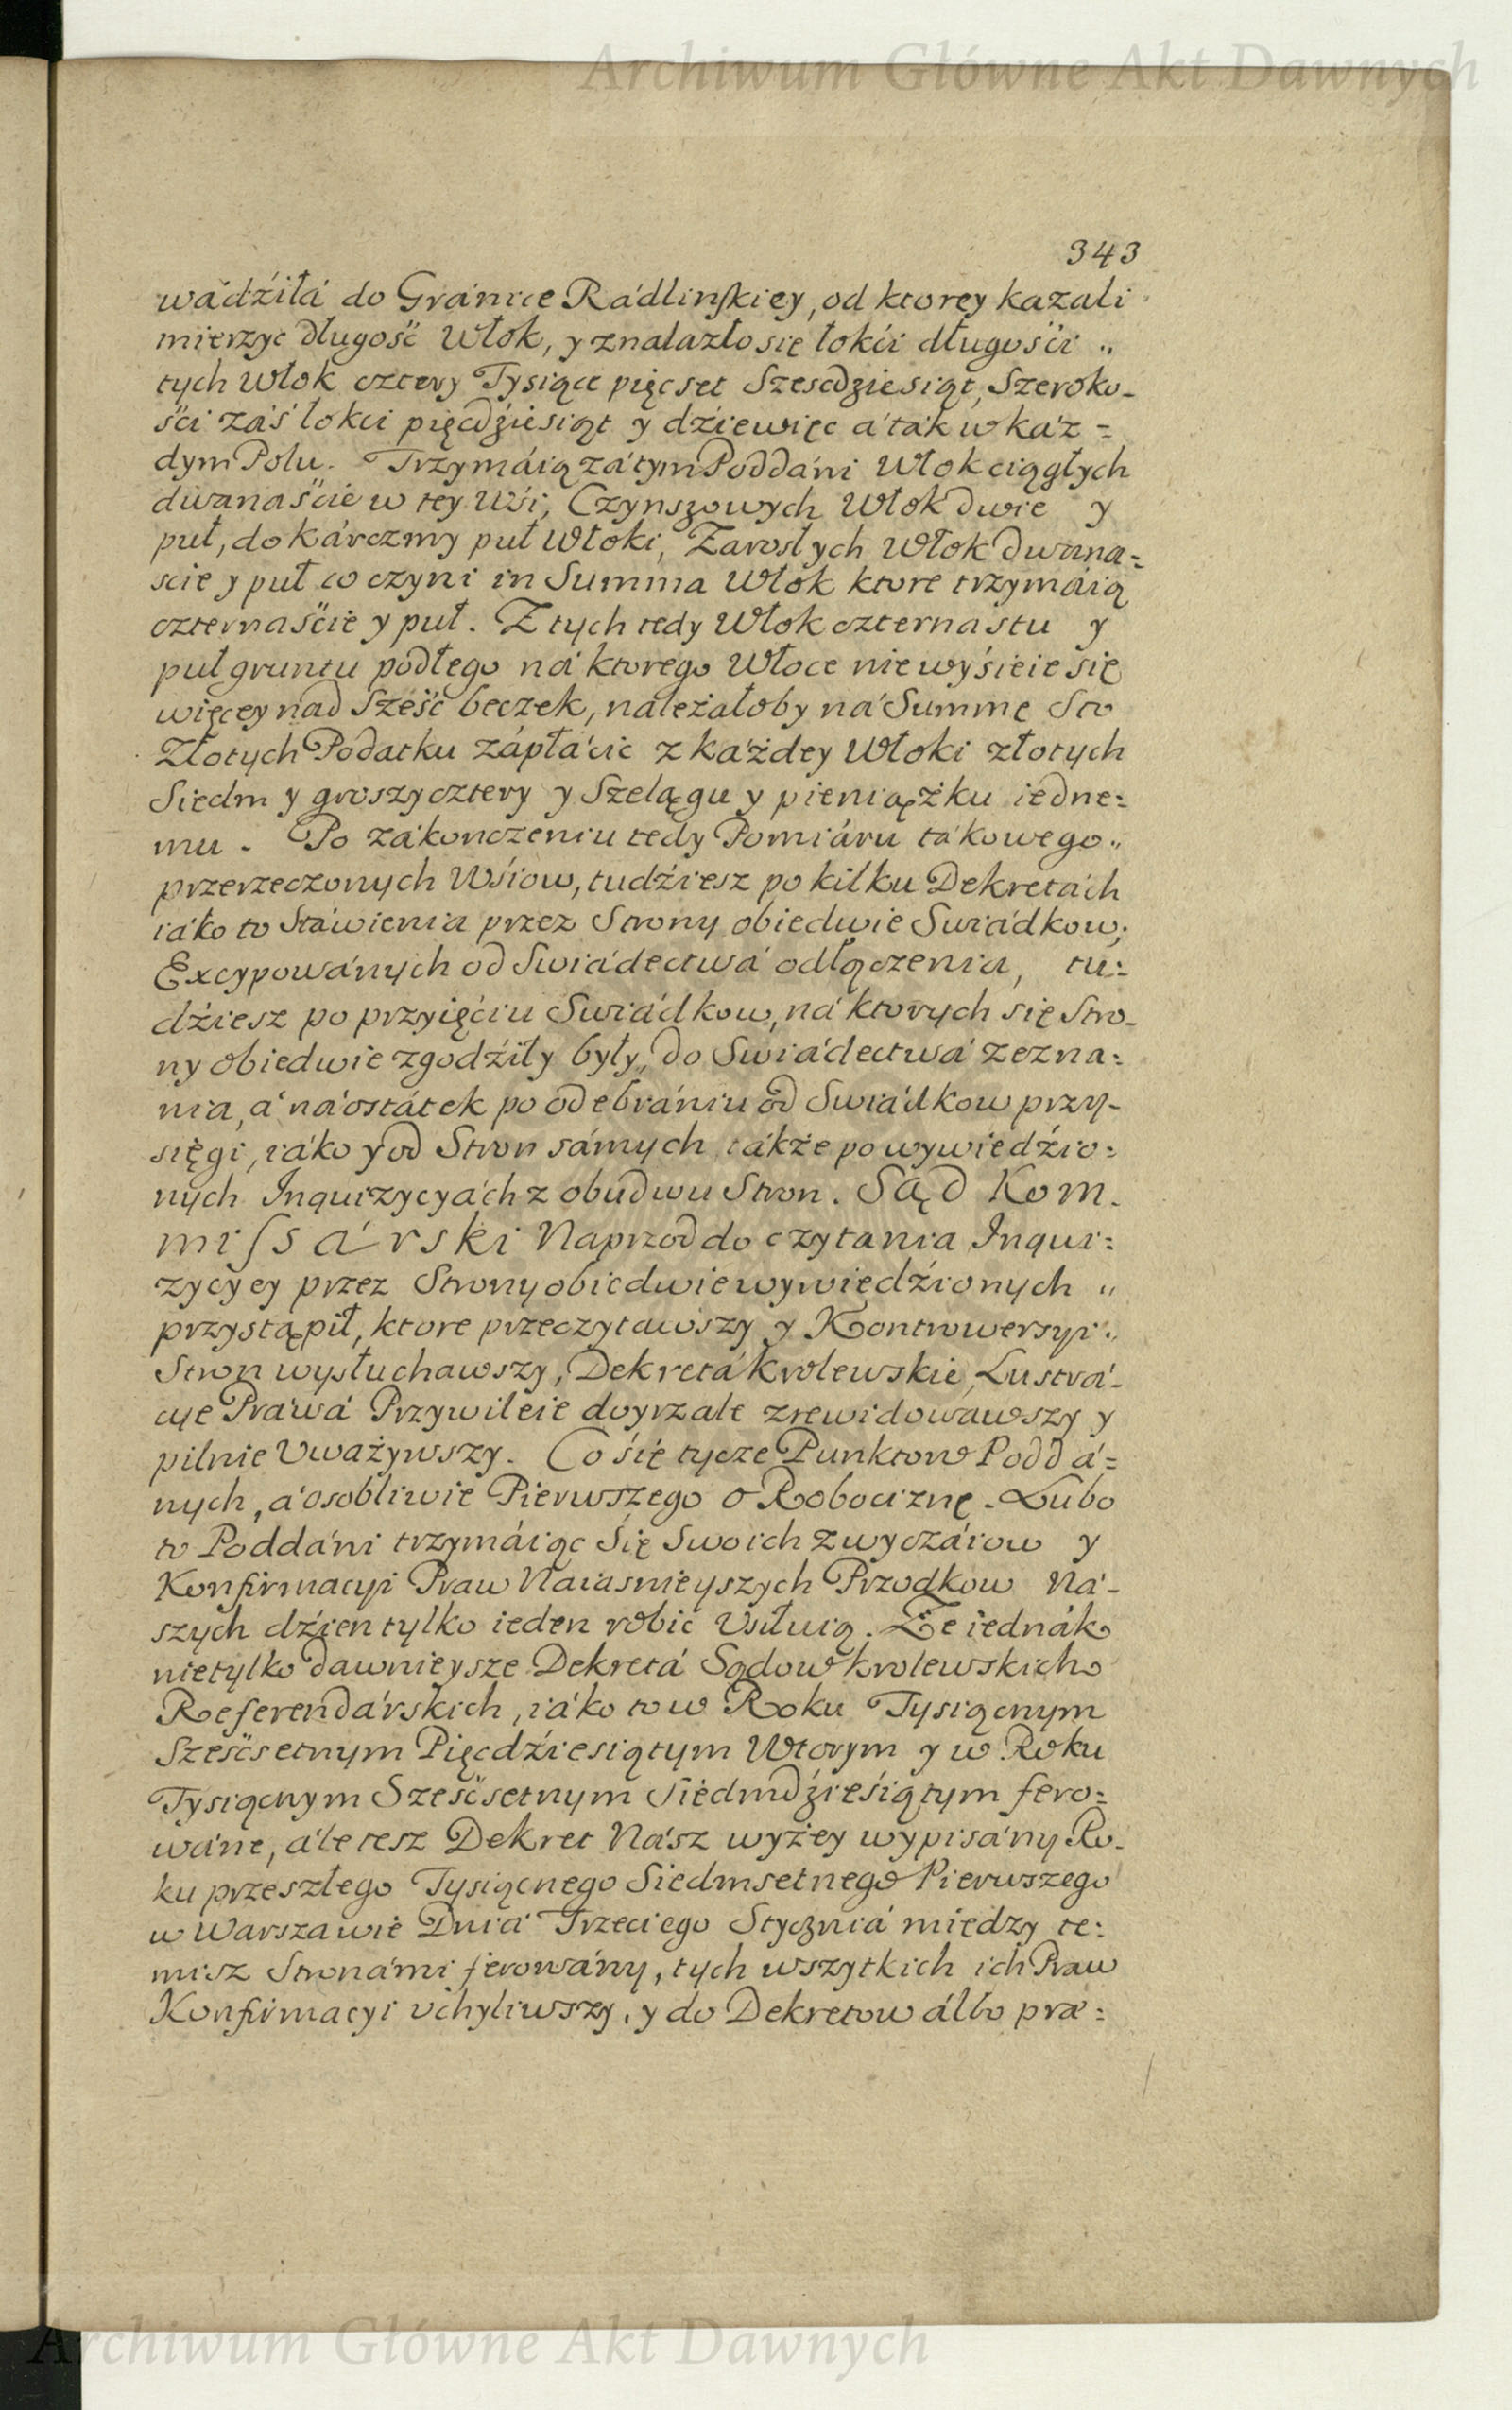 Archiwum Główne Akt Dawnych
343
wádźiłá do Gránice Rádlinskiey, od ktorey kazali
mierzyc długość Włok, y znalazło się łokći długośći „
tych Włok cztery Tysiące pięcset Szescdziesiąt, Szeroko-
śći záś lokci pięcdźiesiąt y dźiewięc á ták w káz =
dym Polu. Trzymáią zátym Poddáni Włok ciągłych
dwanaśćie w tey Wśi, Czynszowych Włok dwie y
puł, do Kárczmy puł Włoki, Zarosłych Włok dwana=
scie y puł co czyni in Summa Włok ktore trzymáią
czternaśćie y puł. Z tych tedy Włok czternastu y
puł gruntu podłego ná ktorego Włoce nie wyśieie się
więcey nad Sześć beczek, należałoby ná Summę Sto
Złotych Podatku zápłáćic z káżdey Włoki złotych
Siedm y groszy cztery y Szelągu y pieniążku iedne=
mu. Po zákonczeniu tedy Pomiáru tákowego „
przerzeczonych Wśiow, tudźiesz po kilku Dekretách
iáko to Stáwienia przez Strony obiedwie Swiádkow;
Excypowánych od Swiádectwá odłączenia, tu=
dźiesz po przyięćiu Swiádkow, ná ktorych się Stro-
ny obiedwie zgodźiły były, do Swiádectwá zezna=
nia, á ná ostátek po odebrániu od Swiádkow przy-
sięgi, iáko y od Stron sámych tákże po wywiedźio=
nych Inquizycyách z obudwu Stron. Sąd Kom-
missárski Naprzod do czytania Inqui=
zycyey przez Strony obiedwie wywiedźionych „
przystąpił, ktore przeczytawszy y Kontrowersyi „
Stron wysłuchawszy, Dekretá krolewskie, Lustrá-
cye Práwá Przywileie doyrzale zrewidowawszy y
pilnie Uważywszy. Co śię tycze Punktow Poddá=
nych, á osobliwie Pierwszego o Robociznę. Lubo
to Poddáni trzymáiąc Się Swoich zwyczáiow y
Konfirmacyi Praw Naiasnieyszych Przodkow Ná-
szych dźien tylko ieden robić Usiłuią. Że iednák
nie tylko dawnieysze Dekretá Sądow krolewskich
Referendárskich, iáko to w Roku Tysiącnym
Sześćsetnym Pięcdźiesiątym Wtorym y w Roku
Tysiącnym Sześćsetnym Siedmdźieśiątym fero=
wáne, ále tesz Dekret Nász wyżey wypisány Ro-
ku przeszłego Tysiącnego Siedmsetnego Pierwszego
w Warszawie Dniá Trzeciego Styczniá między te=
misz Stronámi ferowány, tych wszytkich ich Praw
Konfirmacyi uchyliwszy, y do Dekretow álbo præ=
Archiwum Główne Akt Dawnych